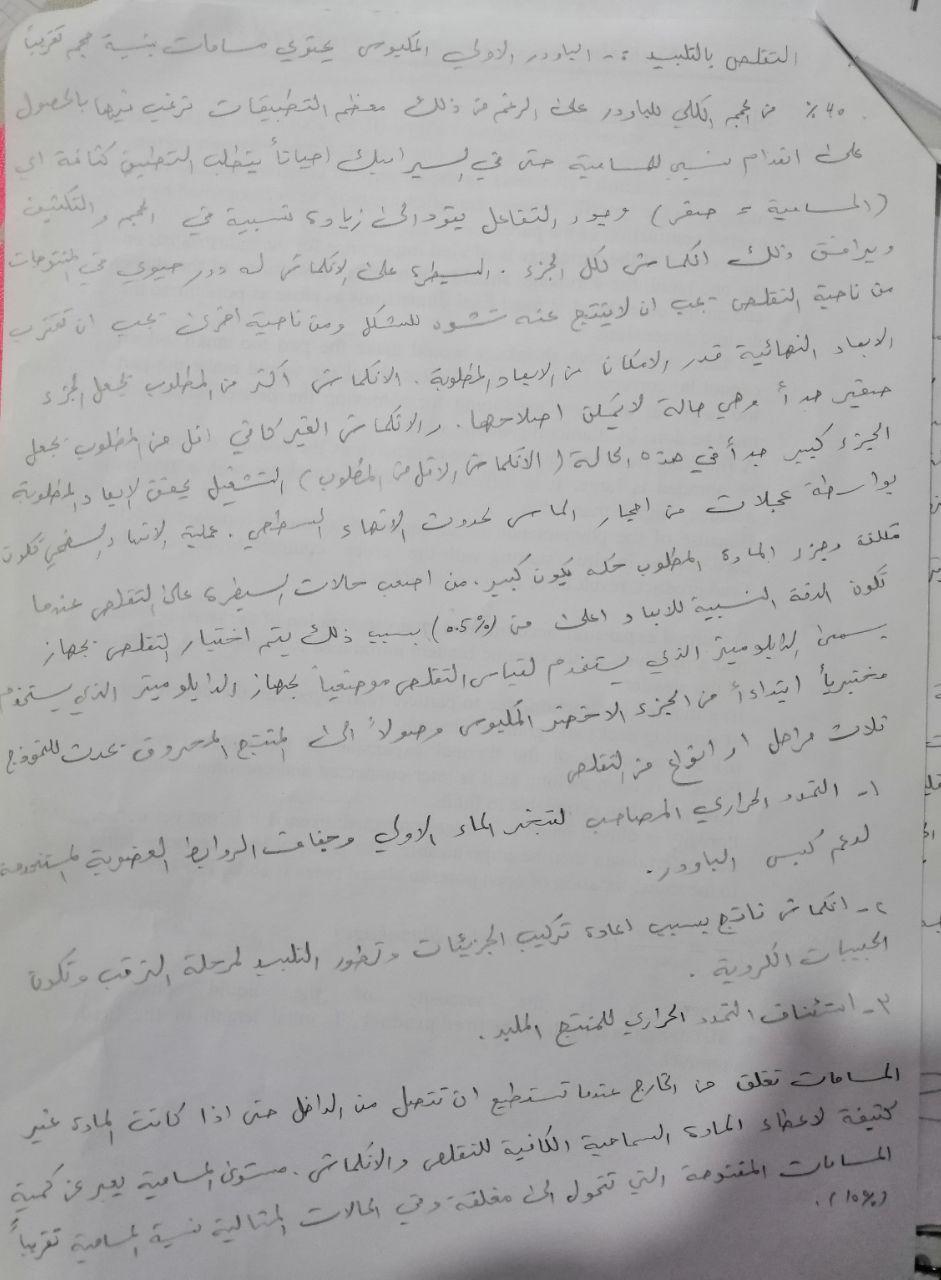 التقلص بالتلبيد :- الباودر الاولي المكبوس يحتوي مسامات بنسبة حجم تقريباً
٤٠٪ من الحجم الكلي للباودر على الرغم من ذلك معظم التطبيقات ترغب فيها بالحصول
على انعدام نسبي للمسامية حتى في السيراميك احياناً يتطلب التطبيق كثافة اي
(المسامية = صفر) وجود التفاعل يقود الى زيادة نسبية في الحجم والتكثيف
ويرافق ذلك انكماش لكل الجزء . السيطرة على الانكماش له دور حيوي في المنتوجات
من ناحية التقلص يجب ان لاينتج عنه تشوه للشكل ومن ناحية اخرى يجب ان تقترب
الابعاد النهائية قدر الامكان من الابعاد المطلوبة . الانكماش اكثر من المطلوب يجعل الجزء
صغير جداً وهي حالة لايمكن اصلاحها . والانكماش الغير كافي اقل من المطلوب يجعل
الجزء كبير جداً في هذه الحالة ( الانكماش الاقل من المطلوب ) التشغيل يحقق الابعاد المطلوبة
بواسطة عجلات من احجار الماس لحدوث الانهاء السطحي . عملية الانهاء السطحي تكون
مكلفة وجزء المادة المطلوب حكه يكون كبير . من اصعب حالات السيطرة على التقلص عندما
تكون الدقة النسبية للابعاد اعلى من (0.5%) بسبب ذلك يتم اختيار التقلص بجهاز
يسمى الدايلوميتر الذي يستخدم لقياس التقلص موضعياً بجهاز الدايلوميتر الذي يستخدم
مختبرياً ابتداءاً من الجزء الاخضر المكبوس وصولاً الى المنتج المحروق يحدث للنموذج
ثلاث مراحل او انواع من التقلص
١- التمدد الحراري المصاحب لتبخر الماء الاولي وجفاف الروابط العضوية المستخدمة
لدعم كبس الباودر .
٢- انكماش ناتج بسبب اعادة تركيب الجزيئات وتطور التلبيد لمرحلة الترقب وتكون
الحبيبات الكروية .
٣- استئناف التمدد الحراري للمنتج الملبد .
المسامات تغلق من الخارج عندما تستطيع ان تتصل من الداخل حتى اذا كانت المادة غير
كثيفة لاعطاء المادة السماحية الكافية للتقلص والانكماش . مستوى المسامية يعبر عن كمية
المسامات المفتوحة التي تتحول الى مغلقة وفي الحالات المثالية نسبة المسامية تقريباً
(١٥%).